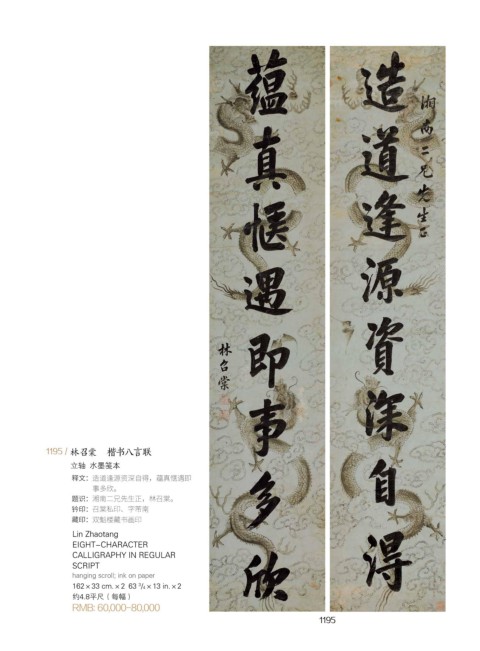 造道逢源資深自得
湘南二兄先生正
蘊真愜遇即事多欣
林召棠
1195 / 林召棠 楷书八言联
立轴 水墨笺本
释文：造道逢源资深自得，蕴真惬遇即
事多欣。
题识：湘南二兄先生正，林召棠。
钤印：召棠私印、字芾南
藏印：双魁楼藏书画印
Lin Zhaotang
EIGHT-CHARACTER
CALLIGRAPHY IN REGULAR
SCRIPT
hanging scroll; ink on paper
162×33 cm. ×2 63 3/4×13 in. ×2
约4.8平尺（每幅）
RMB: 60,000-80,000
1195